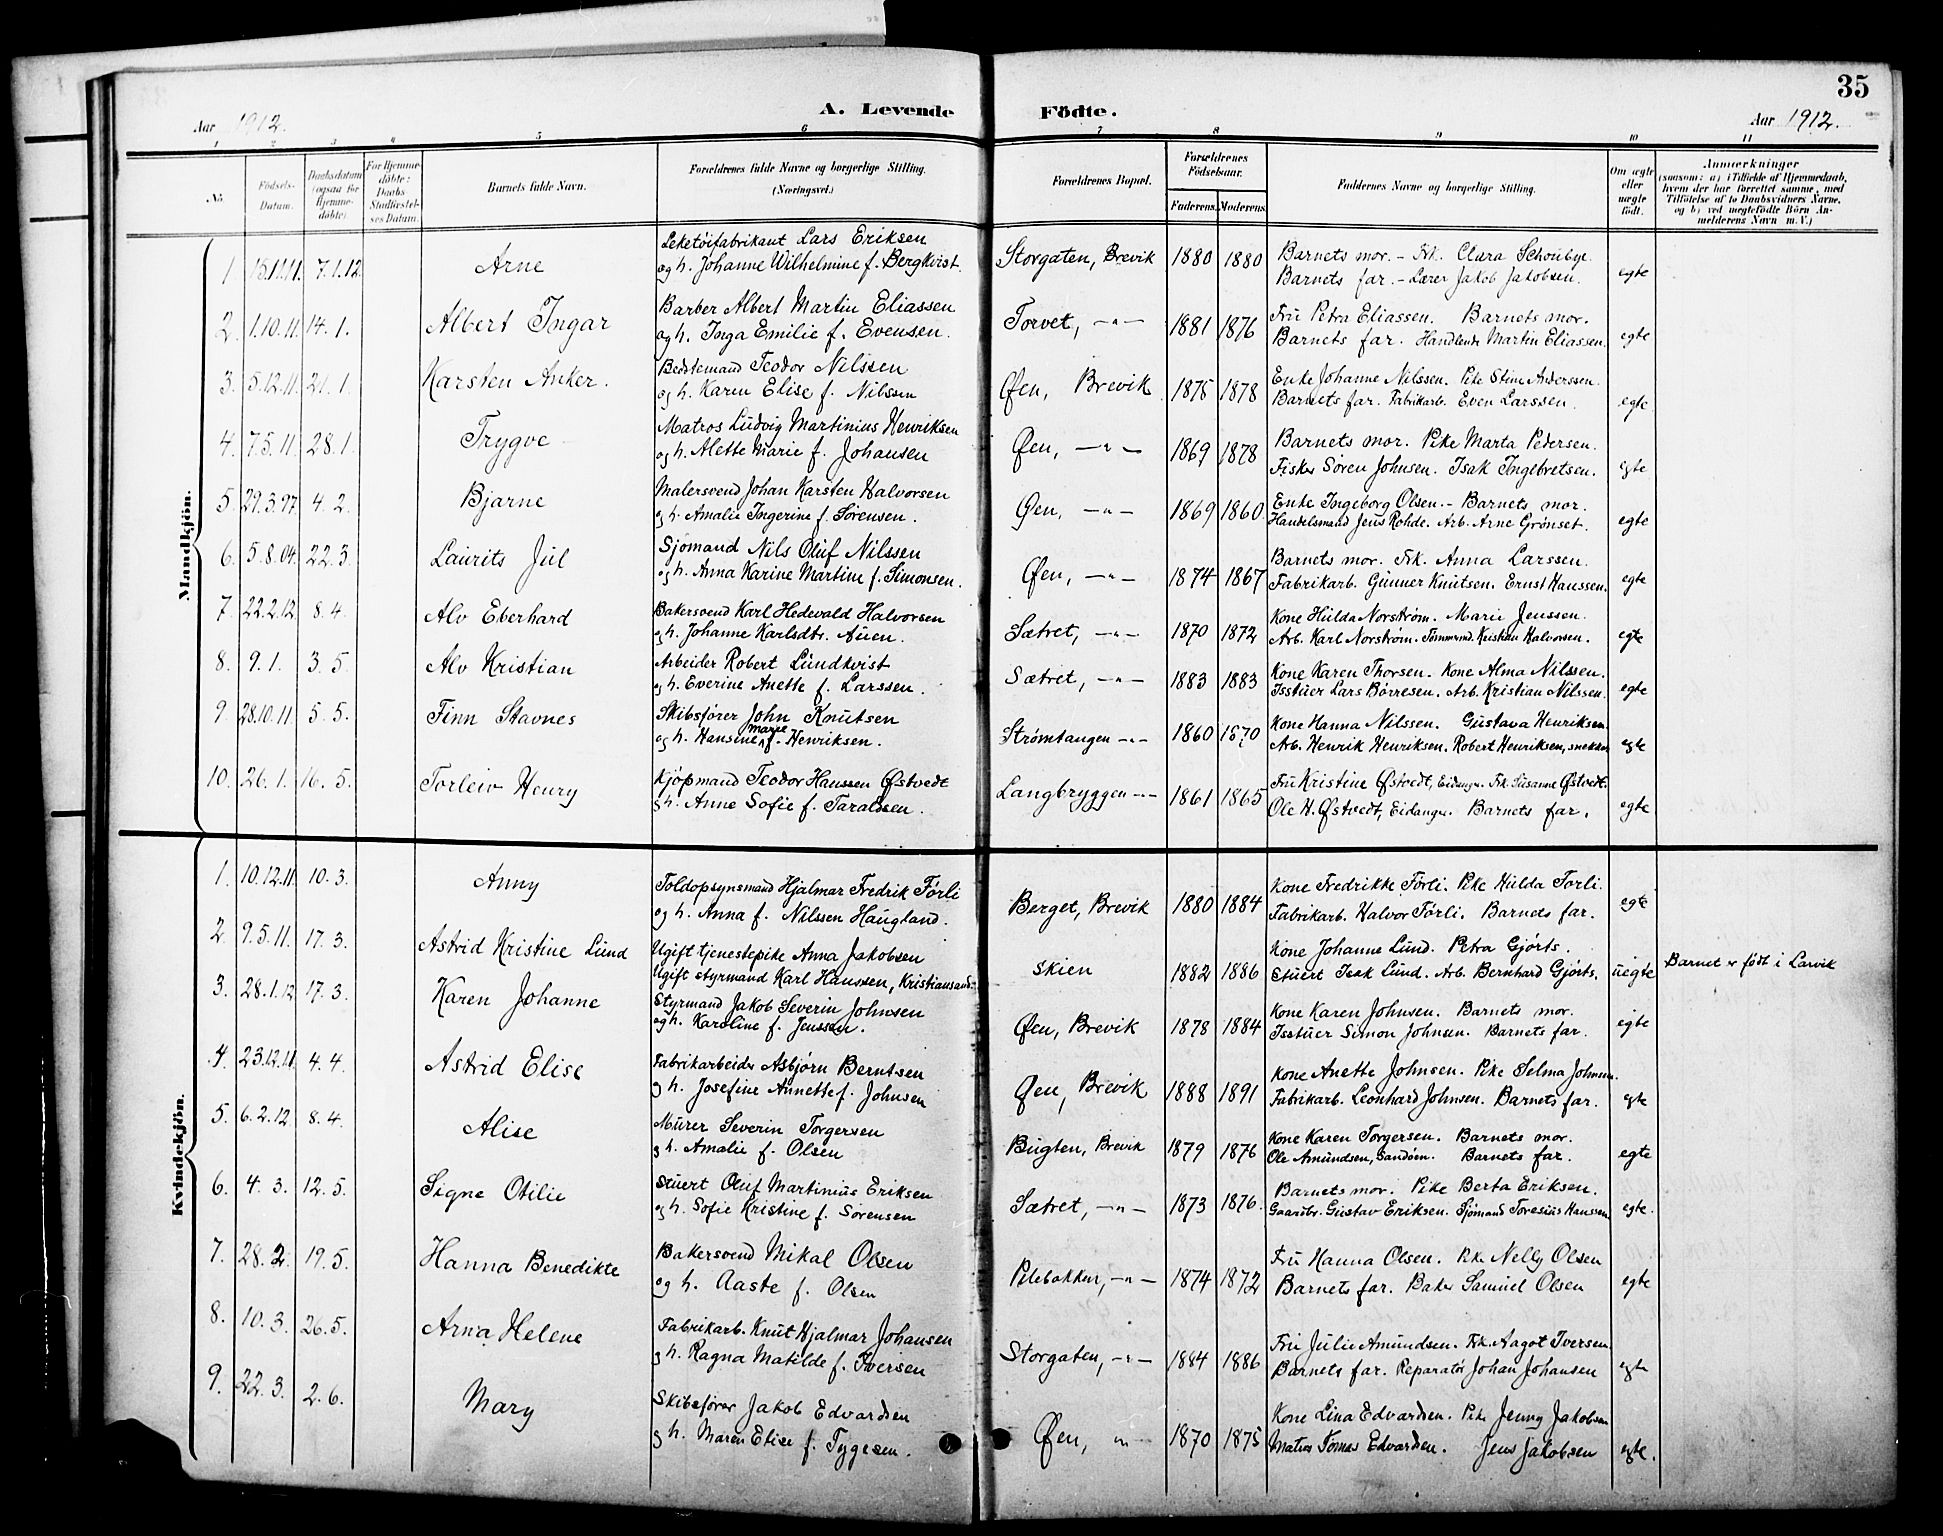 35
Aar 1912.
A. Levende
Födte.
Aar 1912.
1 2 3 4 5 6 7 8 9 10 11
No.
Födsels-Datum.
Daabsdatum (ogsaa for Hjemme-döbte).
For Hjemme-döbte: Daabs Stadfæstel-ses Datum.
Barnets fulde Navn.
Forældrenes fulde Navne og borgerlige Stilling. (Næringsvei.)
Forældrenes Bopæl.
Forældrenes Födselsaar.
Faderens. Moderens.
Faddernes Navne og borgerlige Stilling.
Om ægte eller uægte födt.
Anmærkninger
(saasom: a) i Tilfælde af Hjemmedaab,
hvem der har forrettet samme, med
Tilföielse af to Daabsvidners Navne,
og b) ved uægtefödte Börn An-
melderens Navn m. V.)
Mandkjön.
1 15.11.11. 7.1.12. Arne
Leketöifabrikant Lars Eriksen
og h. Johanne Wilhelmine f. Bergkvist.
Storgaten, Brevik 1880 1880
Barnets mor. - Frk. Clara Schoubye.
Barnets far. - Lærer Jakob Jakobsen.
egte
2. 1.10.11. 14.1. Albert Ingar
Barber Albert Martin Eliassen
og h. Inga Emilie f. Evensen.
Torvet, -"- 1881 1876
Fru Petra Eliassen. Barnets mor.
Barnets far. Handlende Martin Eliassen.
egte
3. 5.12.11. 21.1. Karsten Anker.
Beddemand Teodor Nilssen
og h. Karen Elise f. Nilssen
Øen, Brevik 1875 1878
Enke Johanne Nilssen. Pike Stine Anderssen.
Barnets far. Fabrikarb. Even Larssen.
egte
4. 7.5.11. 28.1. Trygve
Matros Ludvig Martinius Henriksen
og h. Alette Marie f. Johansen
Øen, -"- 1869 1878
Barnets mor. Pike Marta Pedersen.
Fisker Søren Johnsen. Isak Ingebretsen.
egte
5. 29.3.97. 4.2. Bjarne
Malersvend Johan Karsten Halvorsen
og h. Amalie Ingerine f. Sørensen.
Øen, -"- 1869 1860.
Enke Ingeborg Olsen. - Barnets mor.
Handelsmand Jens Rohde. Arb. Arne Grønset.
egte
6. 5.8.04. 22.3. Laurits Jul
Sjömand Nils Oluf Nilssen
og h. Anna Karine Martine f. Simonsen.
Øen, -"- 1874 1867
Barnets mor. Frk. Anna Larssen.
Fabrikarb. Gunner Knutsen. Ernst Hanssen.
egte
7. 22.2.12. 8.4. Alv Eberhard
Bakersvend Karl Hedevald Halvorsen
og h. Johanne Karlsdtr. Auen.
Sætret, -"- 1870 1872
Kone Hulda Norstrøm. Marie Jenssen.
Arb. Karl Norstrøm. Tømmermd. Kristian Halvorsen.
egte
8. 9.1. 3.5. Alv Kristian
Arbeider Robert Lundkvist
og h. Everine Anette f. Larssen.
Sætret, -"- 1883 1883
Kone Karen Thorsen. Kone Alma Nilssen.
Isstuer Lars Børresen. Arb. Kristian Nilssen.
egte
9. 28.10.11. 5.5. Finn Stavnes
Skibsfører John Knutsen
og h. Hansine Marie f. Henriksen.
Strømtangen -"- 1860 1870
Kone Hanna Nilssen. Gustava Henriksen.
Arb. Henrik Henriksen. Robert Henriksen, snekker
egte
10. 26.1. 16.5. Torleiv Henry
Kjöpmand Teodor Hanssen Østvedt
og h. Anne Sofie f. Taraldsen.
Langbryggen -"- 1861 1865
Fru Kristine Østvedt, Eidanger. Frk. Susanne Østvedt.
Ole H. Østvedt, Eidanger. Barnets far.
egte
Kvindekjön.
1. 10.12.11. 10.3. Anny
Toldopsynsmand Hjalmar Fredrik Førli
og h. Anna f. Nilssen Haugland.
Berget, Brevik 1880 1884
Kone Fredrikke Førli. Pike Hulda Førli.
Fabrikarb. Halvor Førli. Barnets far.
egte
2. 9.5.11. 17.3. Astrid Kristine Lund
Ugift tjenestepike Anna Jakobsen
Ugift styrmand Karl Hanssen, Kristiansand.
Skien 1882 1886
Kone Johanne Lund. Petra Gjörts.
Stuert Isak Lund. Arb. Bernhard Gjörts.
uegte
Barnet er født i Larvik
3. 28.1.12 17.3. Karen Johanne
Styrmand Jakob Severin Johnsen
og h. Karoline f. Jenssen.
Øen, Brevik 1878 1884
Kone Karen Johnsen. Barnets mor.
Isstuer Simon Johnsen. Barnets far.
egte
4. 23.12.11. 4.4. Astrid Elise
Fabrikarbeider Asbjørn Berntsen
og h. Josefine Annette f. Johnsen
Øen, Brevik 1888 1891
Kone Anette Johnsen. Pike Selma Johnsen.
Fabrikarb. Leonhard Johnsen. Barnets far.
egte
5. 6.2.12. 8.4. Alise
Murer Severin Torgersen
og h. Amalie f. Olsen
Bugten, Brevik 1879 1876
Kone Karen Torgersen. Barnets mor.
Ole Amundsen, Sandøen. Barnets far.
egte
6. 4.3. 12.5. Signe Otilie
Stuert Oluf Martinius Eriksen
og h. Sofie Kristine f. Sørensen
Sætret, -"- 1873 1876.
Barnets mor. Pike Berta Eriksen.
Gaardbr. Gustav Eriksen. Sjömand Toresius Hanssen
egte.
7. 28.2. 19.5. Hanna Benedikte
Bakersvend Mikal Olsen
og h. Aaste f. Olsen
Pilebakken, -"- 1874 1872
Fru Hanna Olsen. Pike Nelly Olsen
Barnets far. Baker Samuel Olsen
egte
8. 10.3. 26.5. Arna Helene
Fabrikarb. Knut Hjalmar Johansen
og h. Ragna Matilde f. Iversen
Storgaten, -"- 1884 1886
Fru Julie Amundsen. Frk. Aagot Iversen.
Barnets far. Reparatør Johan Johansen
egte
9. 22.3. 2.6. Mary
Skibsfører Jakob Edvardsen
og h. Maren Elise f. Tygesen.
Øen, -"- 1870 1875
Kone Lina Edvardsen. Pike Jenny Jakobsen
Matros Tomas Edvardsen. Jens Jakobsen
egte.